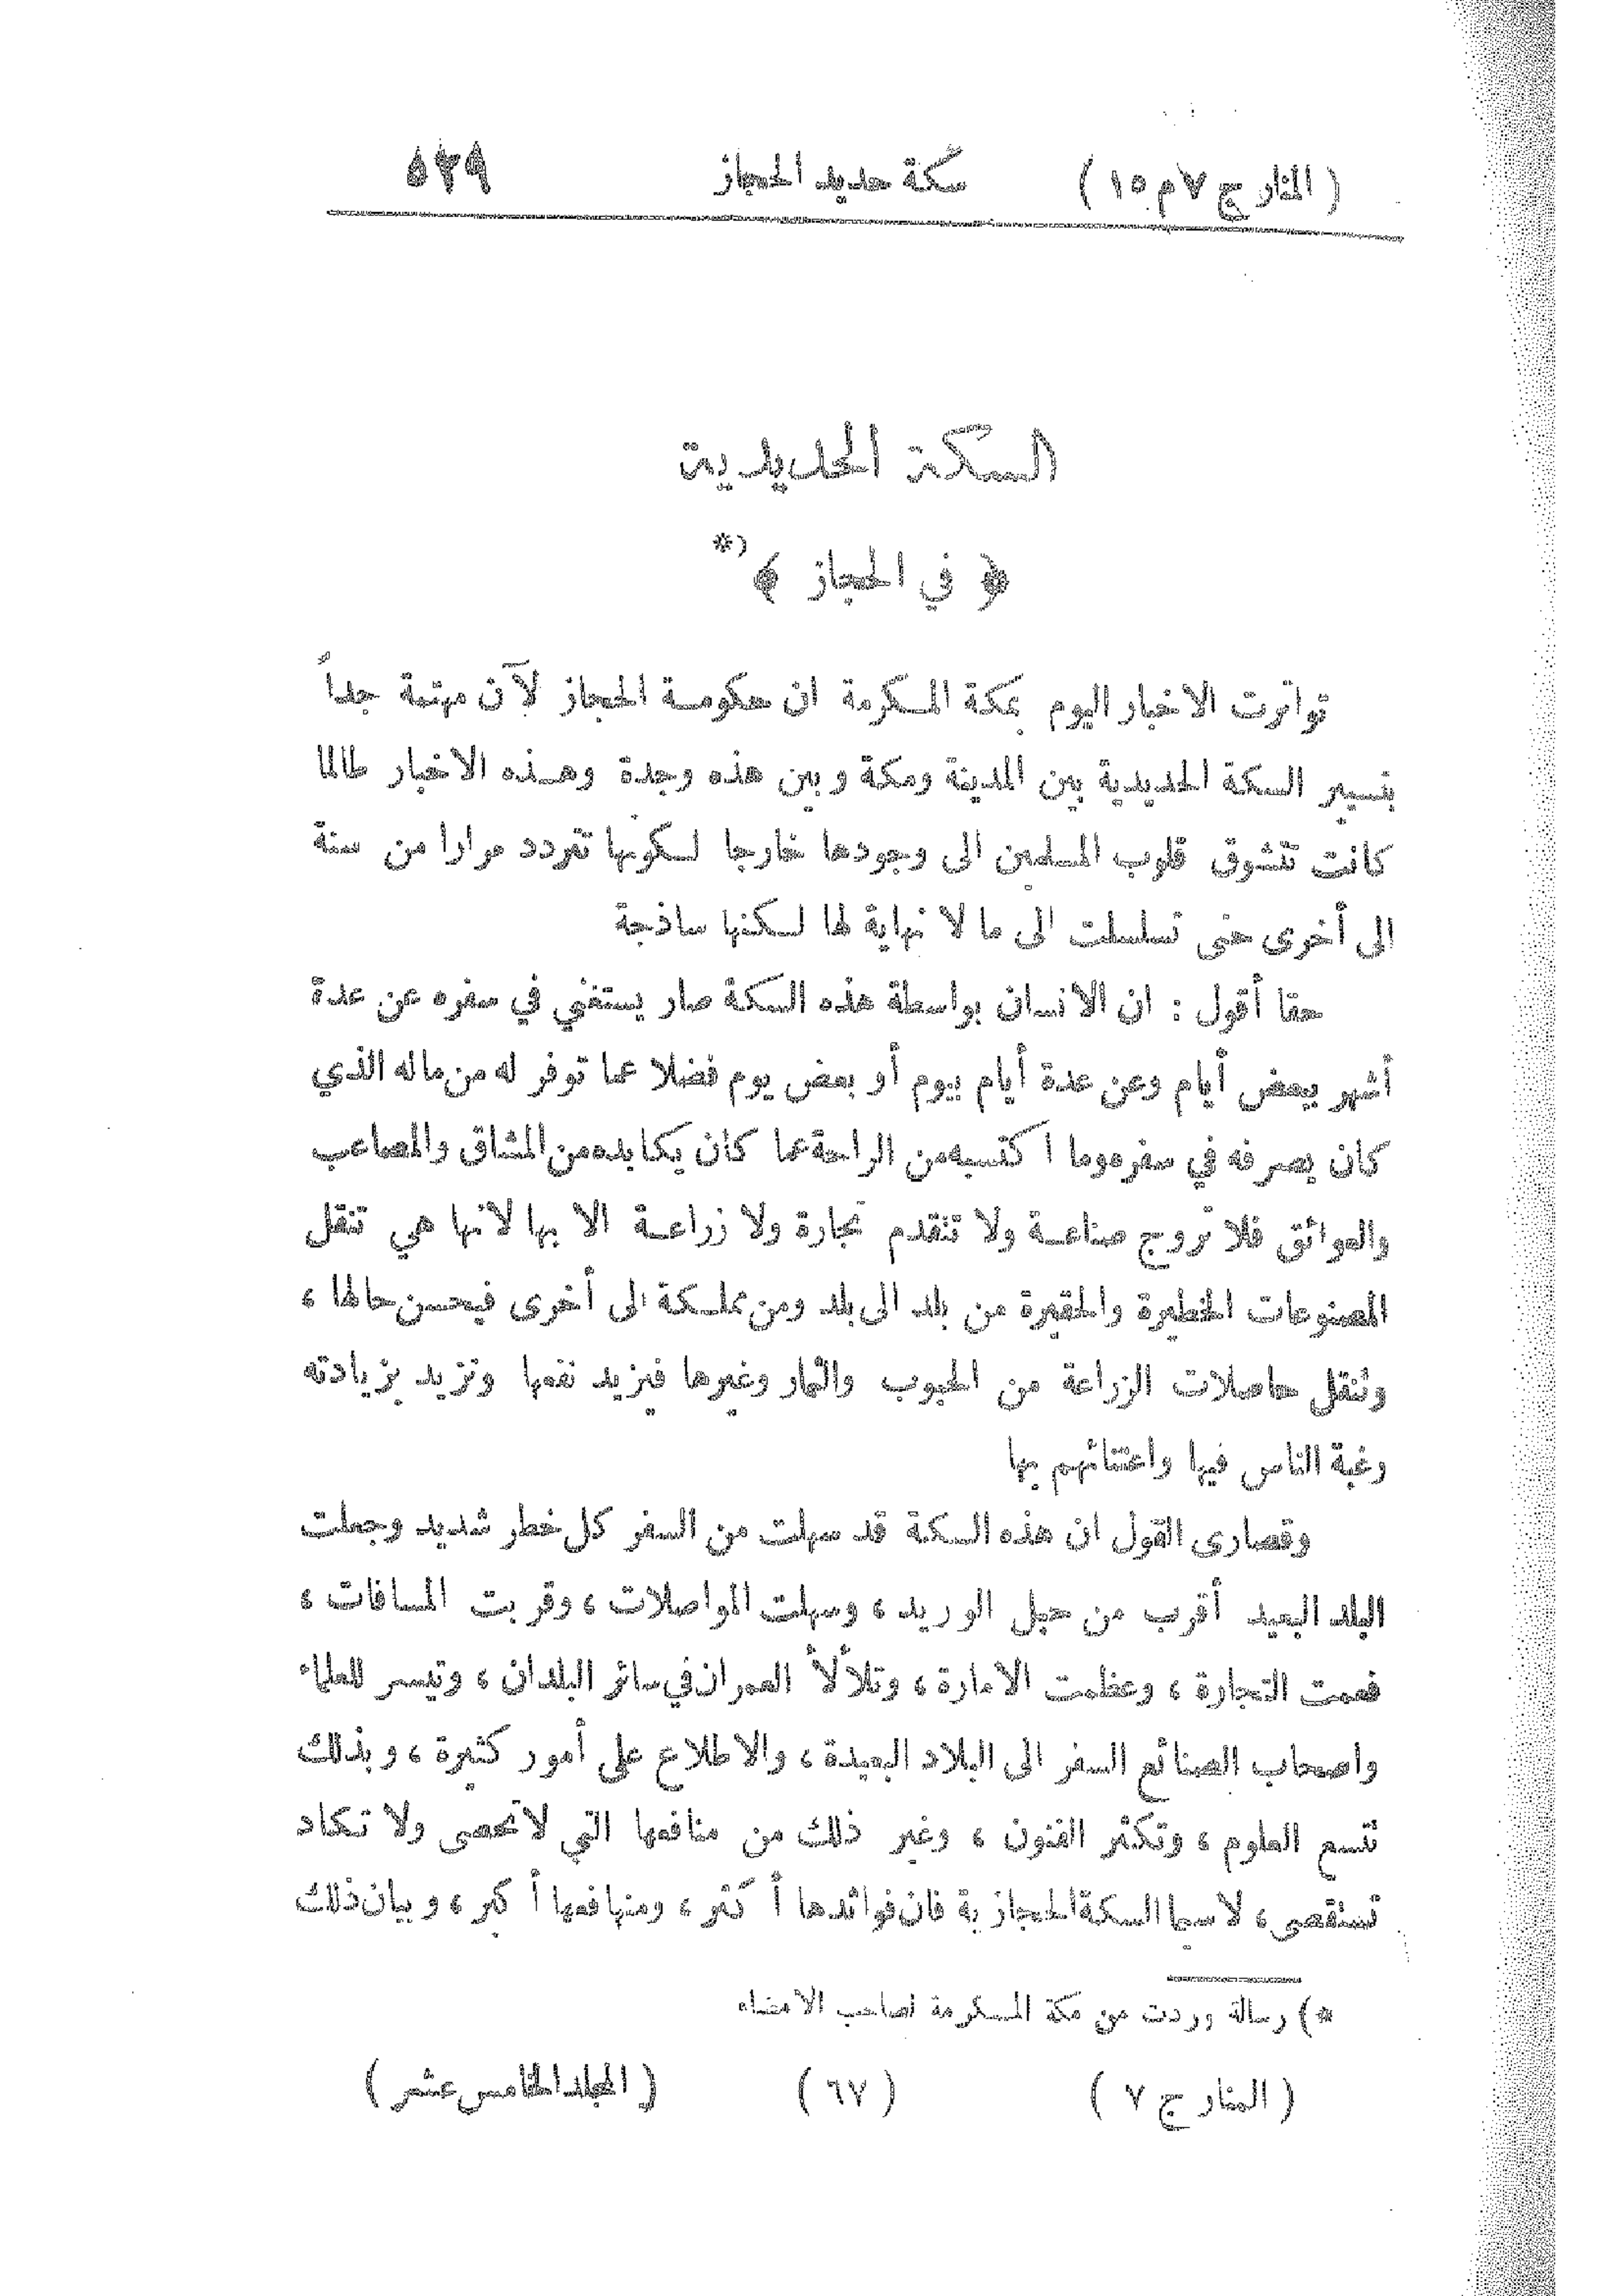 ( المنار ج ٧ م ١٥ ) سكة حديد الحجاز ٥٢٩
السكة الحديدية
﴿ في الحجاز ﴾ *)
تواترت الاخبار اليوم بمكة المكرمة ان حكومة الحجاز لآن مهتمة جداً
بتسيير السكة الحديدية بين المدينة ومكة وبين هذه وجدة وهذه الاخبار طالما
كانت تتشوق قلوب المسلمين الى وجودها خارجا لكونها تتردد مرارا من سنة
الى أخرى حتى تسلسلت الى ما لا نهاية لها لكنها ساذجة
حقا أقول : ان الانسان بواسطة هذه السكة صار يستغني في سفره عن عدة
أشهر ببعض أيام وعن عدة أيام بيوم أو بعض يوم فضلا عما توفر له من ماله الذي
كان يصرفه في سفره وما اكتسبه من الراحة عما كان يكابده من المشاق والمصاعب
والعوائق فلا تروج صناعة ولا تتقدم تجارة ولا زراعة الا بها لانها هي تنقل
المصنوعات الخطيرة والحقيرة من بلد الى بلد ومن مملكة الى أخرى فيحسن حالها ،
وتنقل حاصلات الزراعة من الحبوب والثمار وغيرها فيزيد نفعها وتزيد بزيادته
رغبة الناس فيها واعتنائهم بها
وقصارى القول ان هذه السكة قد سهلت من السفر كل خطر شديد وجعلت
البلد البعيد أقرب من حبل الوريد ، وسهلت المواصلات ، وقربت المسافات ،
فعمت التجارة ، وعظمت الامارة ، وتلألأ العمران في سائر البلدان ، وتيسر للعلماء
واصحاب الصنائع السفر الى البلاد البعيدة ، والاطلاع على أمور كثيرة ، وبذلك
تتسع العلوم ، وتكثر الفنون ، وغير ذلك من منافعها التي لا تحصى ولا تكاد
تستقصى ، لا سيما السكة الحجازية فان فوائدها أكثر ، ومنافعها أكبر ، وبيان ذلك
*) رسالة وردت من مكة المكرمة لصاحب الامضاء
( المنار ج ٧ ) ( ٦٧ ) ( المجلد الخامس عشر )